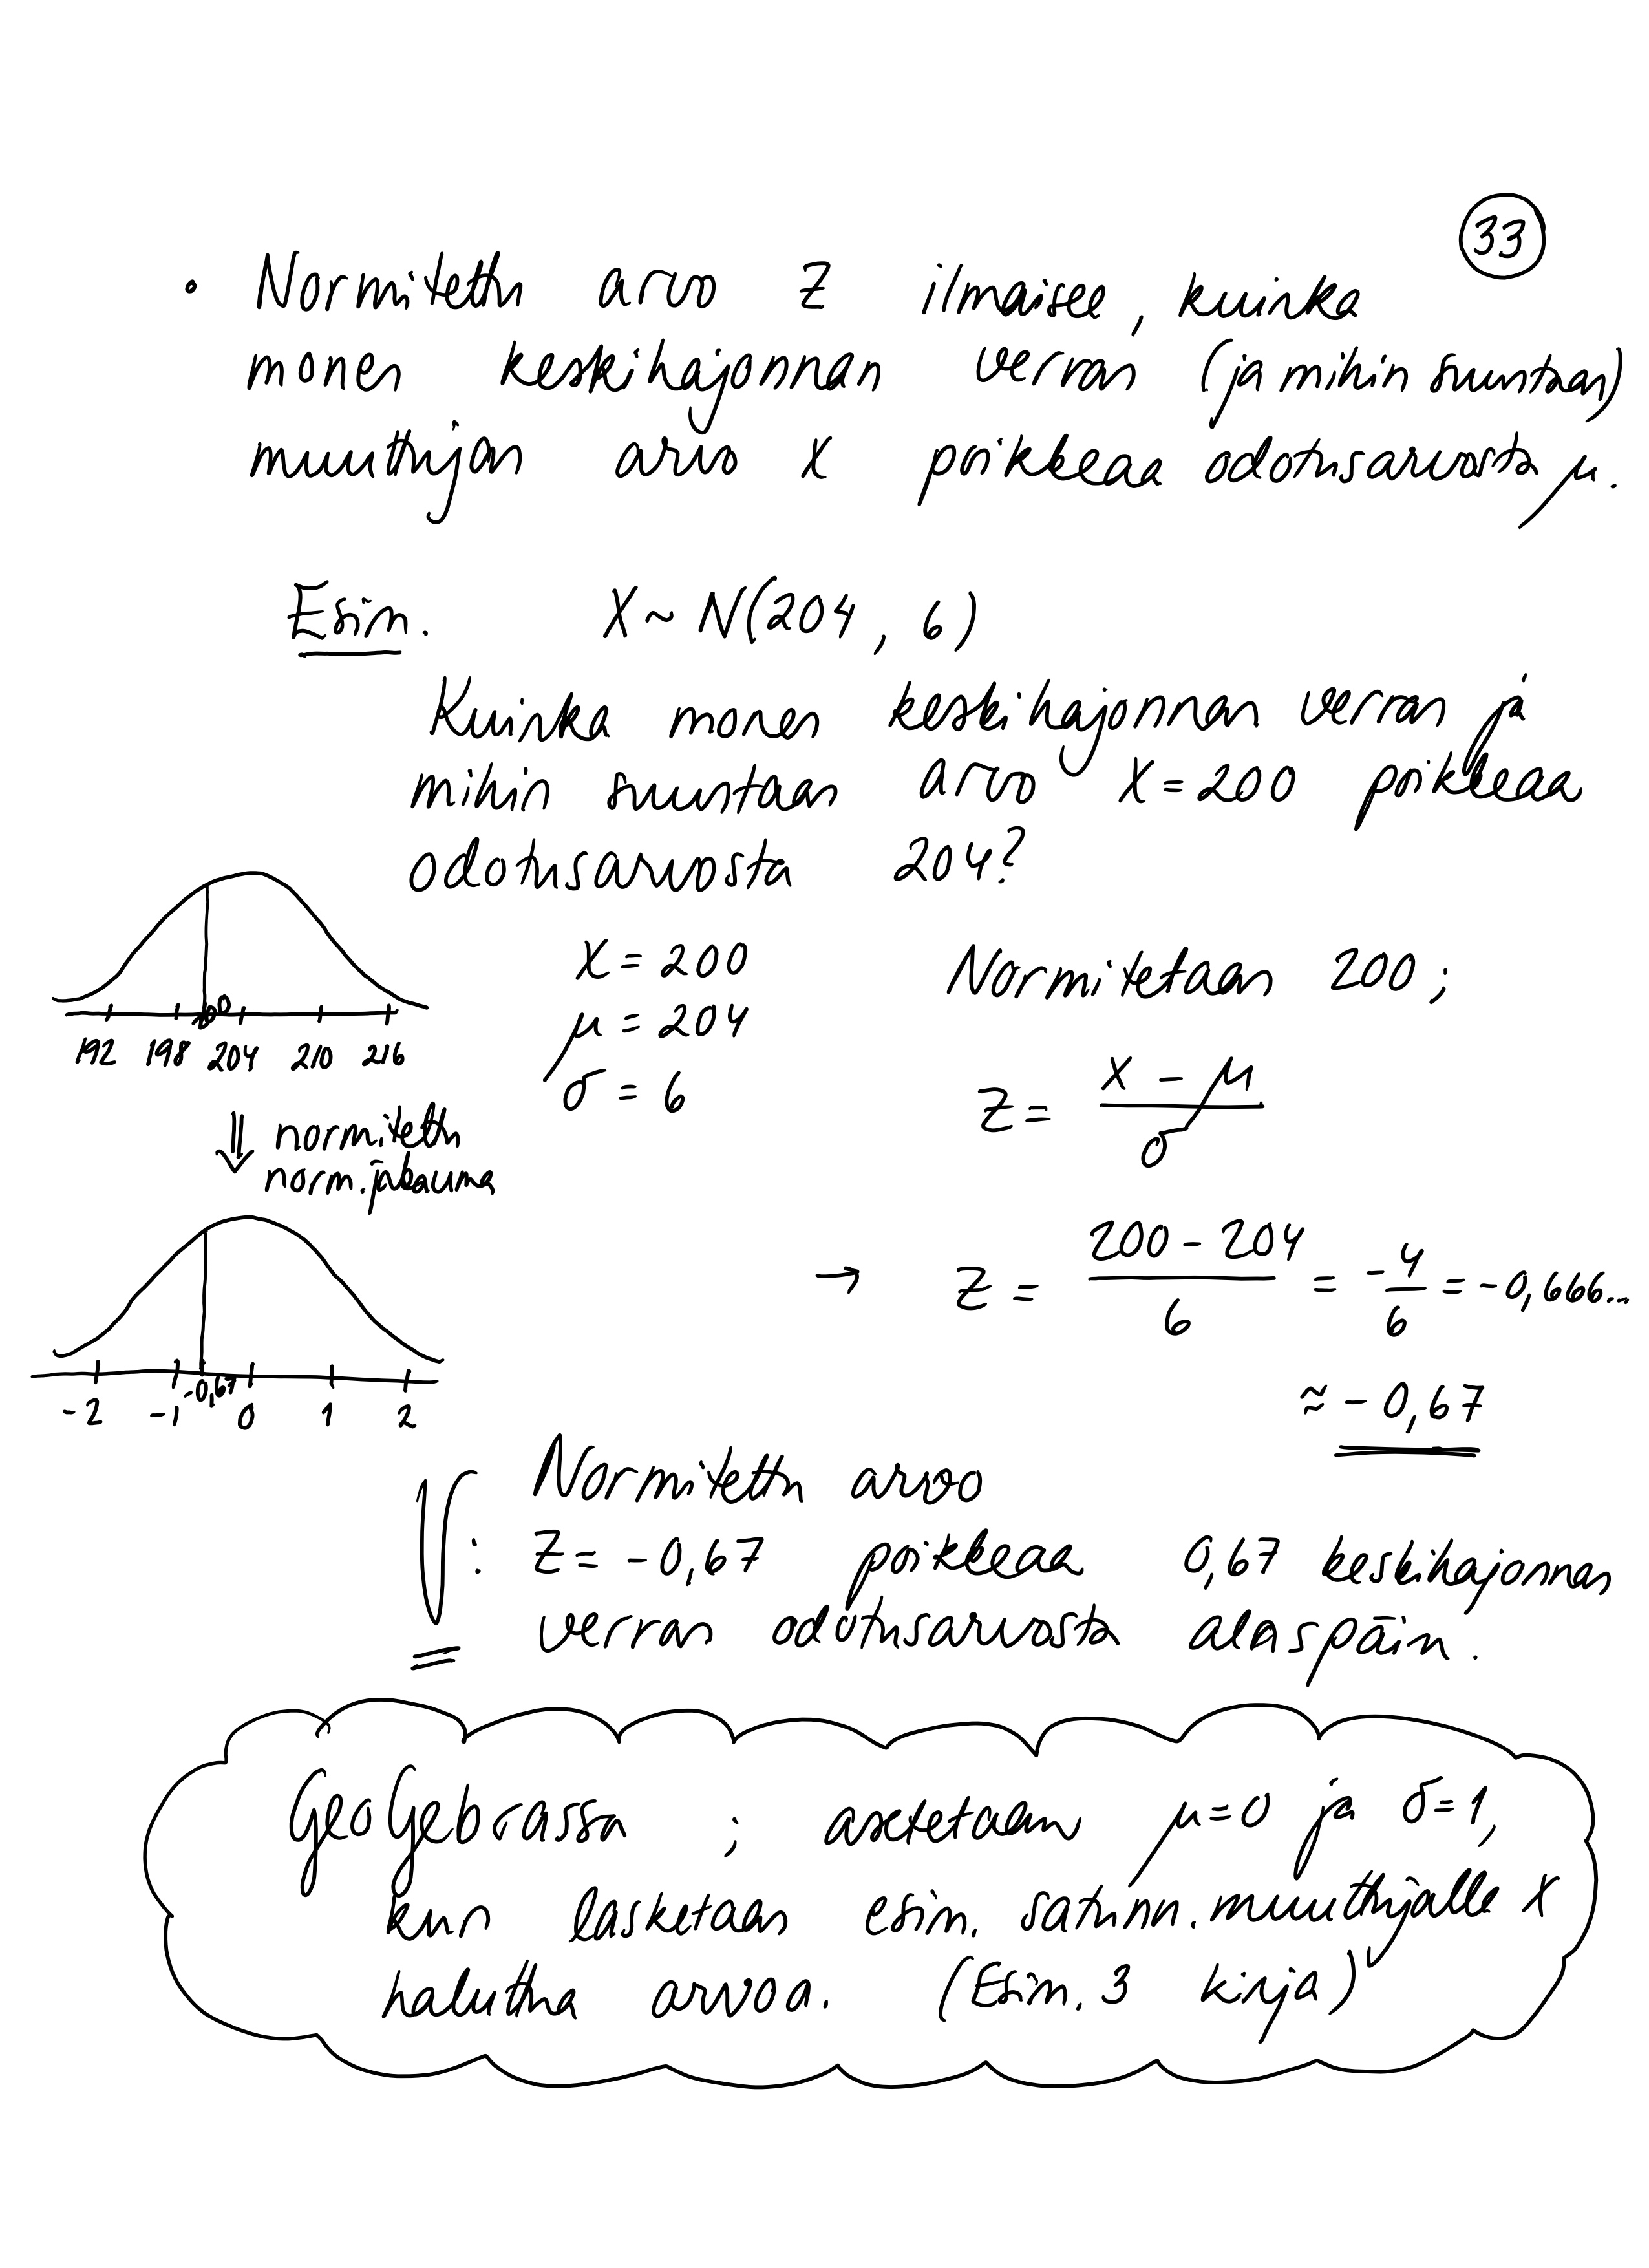 33
• Normitettu arvo z ilmaisee, kuinka
monen keskihajonnan verran (ja mihin suuntaan)
muuttujan arvo x poikkeaa odotusarvosta μ.
Esim. X ~ N(204, 6)
Kuinka monen keskihajonnan verran ja
mihin suuntaan arvo X = 200 poikkeaa
odotusarvosta 204?
200
192 198 204 210 216
x = 200
μ = 204
σ = 6
Normitetaan 200 ;
z = (x - μ) / σ
⇓ normitettu
norm.jakauma
→ z = (200 - 204) / 6 = -4/6 = -0,666...
≈ -0,67
-2 -1 -0,67 0 1 2
V: Normitettu arvo
z = -0,67 poikkeaa 0,67 keskihajonnan
verran odotusarvosta alaspäin.
GeoGebrassa ; asetetaan μ=0 ja σ=1,
kun lasketaan esim. satunn.muuttujalle X
haluttua arvoa. (Esim. 3 kirja)